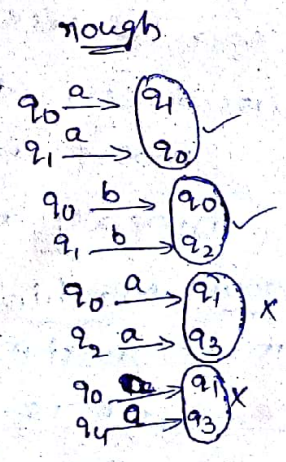 rough
q0 a→ q1
q1 a→ q0 ✓
q0 b→ q0
q1 b→ q2 ✓
q0 a→ q1
q2 a→ q3 x
q0 → q1
q4 a→ q3 x